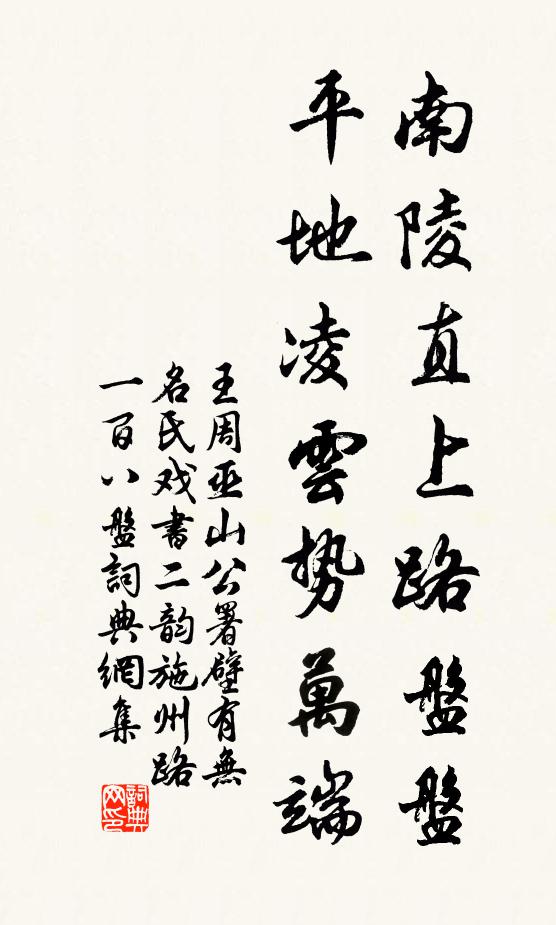 南陵直上路盤盤
平地凌雲勢萬端
王周巫山公署壁有無
名氏戏書二韵施州路
一百八盤詞典網集
詞典
网印